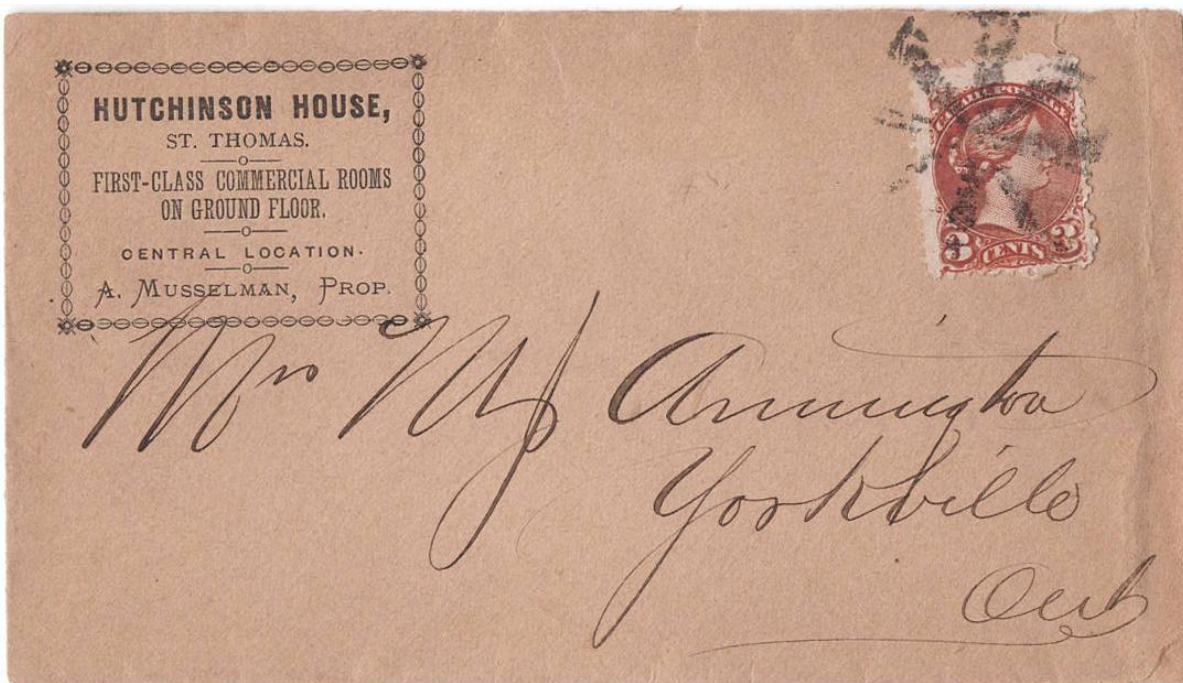 HUTCHINSON HOUSE,
ST. THOMAS.
FIRST-CLASS COMMERCIAL ROOMS
ON GROUND FLOOR.
CENTRAL LOCATION.
A. MUSSELMAN, PROP.
CANADA POSTAGE
3 CENTS 3
Mrs M J Annington
Yorkville
Ont